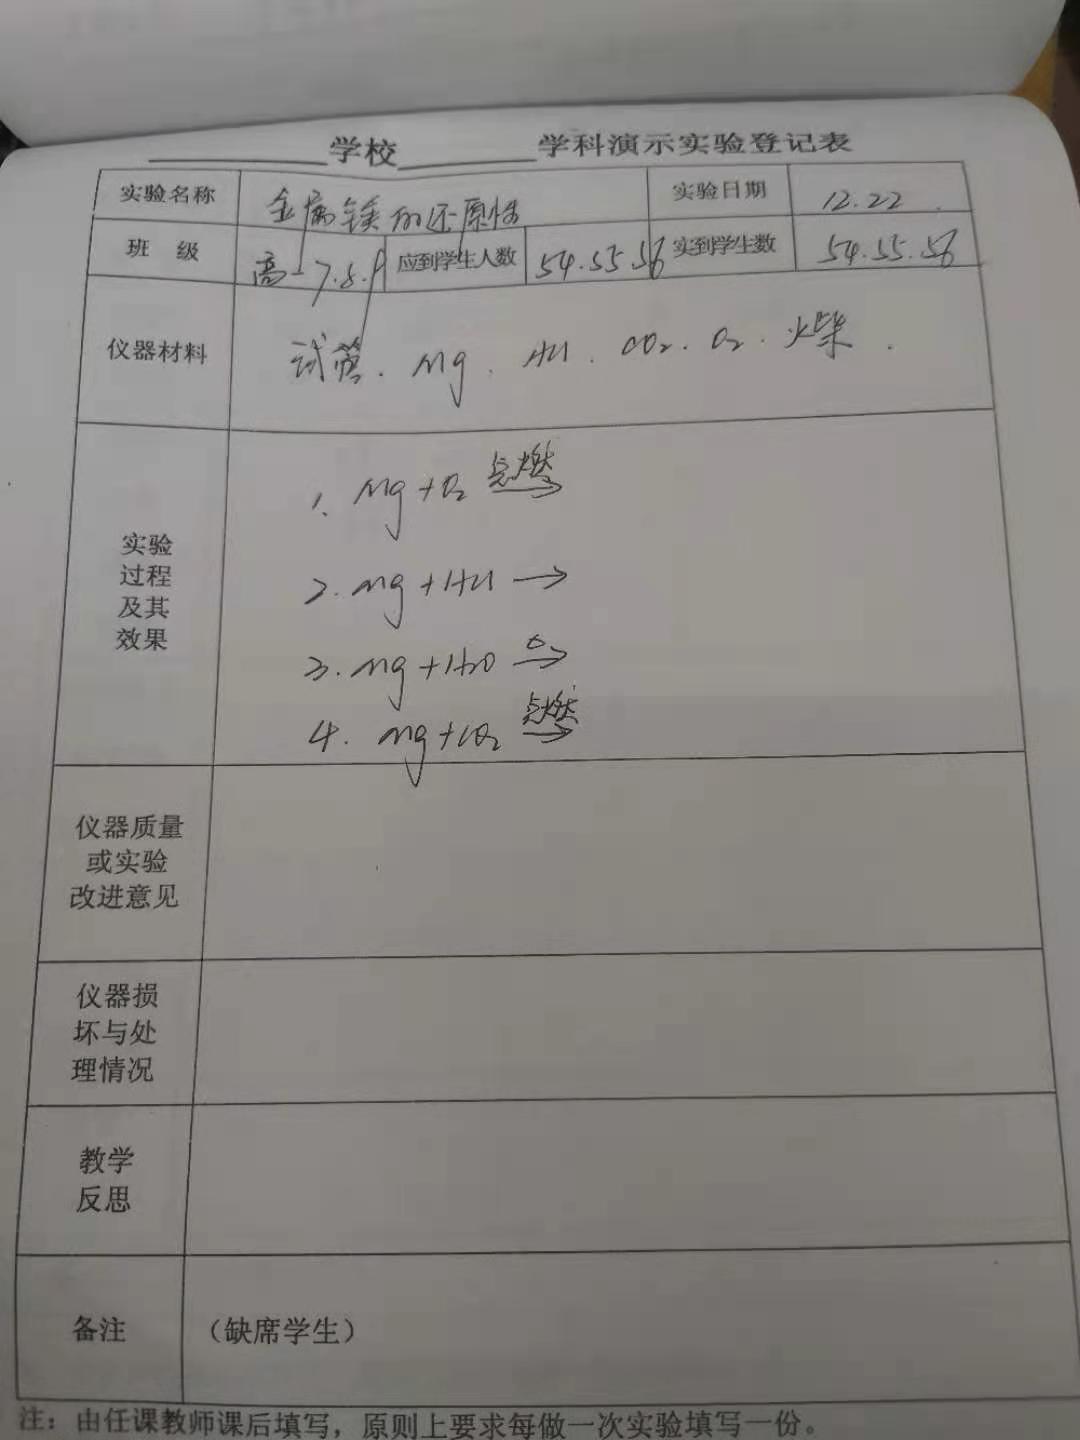 ______学校______学科演示实验登记表
实验名称 金属镁的还原性 实验日期 12.22.
班 级 高一7.8.9 应到学生人数 54.55.56 实到学生数 54.55.56
仪器材料 试管. Mg. HCl. CO₂. O₂. 火柴.
实验
过程
及其
效果
1. Mg+O₂ 点燃→
2. Mg+HCl →
3. Mg+H₂O △→
4. Mg+CO₂ 点燃→
仪器质量
或实验
改进意见
仪器损
坏与处
理情况
教学
反思
备注 （缺席学生）
注：由任课教师课后填写，原则上要求每做一次实验填写一份。